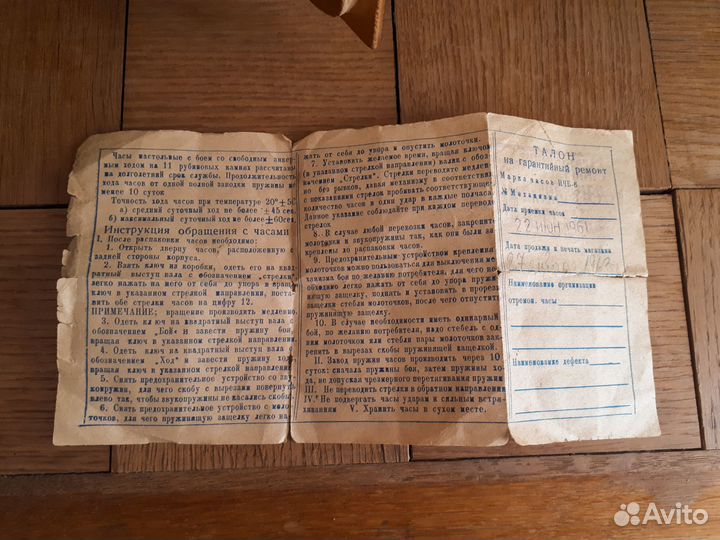 Часы настольные с боем со свободным анкер-
ным ходом на 11 рубиновых камнях рассчитаны
на долголетний срок службы. Продолжительность
хода часов от одной полной заводки пружины не
менее 10 суток
Точность хода часов при температуре 20°±5°
а) средний суточный ход не более ±45 сек.
б) максимальный суточный ход не более ±60сек.
Инструкция обращения с часами
I. После распаковки часов необходимо:
1. Открыть дверцу часов, расположенную с
задней стороны корпуса.
2. Взять ключ из коробки, одеть его на квад-
ратный выступ вала с обозначением „стрелки"
легко нажать на него от себя до упора и вращая
ключ в указанном стрелкой направлении, поста-
вить обе стрелки часов на цифру 12.
ПРИМЕЧАНИЕ; вращение производить медленно.
3. Одеть ключ на квадратный выступ вала с
обозначением „Бой" и завести пружину боя,
вращая ключ в указанном стрелкой направлении.
4. Одеть ключ на квадратный выступ вала с
обозначением „Ход" и завести пружину хода
вращая ключ в указанном стрелкой направлении
5. Снять предохранительное устройство со зву-
копружин, для чего скобу с вырезами повернуть
влево так, чтобы звукопружины не касались скобы.
6. Снять предохранительное устройство с моло-
точков, для чего пружинящую защелку легко на-
жать от себя до упора и опустить молоточки.
7. Установить желаемое время, вращая ключом
(в указанном стрелкой направлении) валик с обоз-
начением „Стрелки". Стрелки переводить медленно
без рывков, давая механизму в соответствии
с показаниями стрелок пробивать соответствующее
количество часов и один удар в каждые полчаса
Данное указание соблюдайте при каждом переводе
стрелок
8. В случае любой перевозки часов, закрепить
молоточки и звукопружины так, как они были за-
креплены до распаковки часов.
9. Предохранительным устройством крепления
молоточков можно пользоваться для выключения ме-
ханизма боя по желанию потребителя, для чего не-
обходимо легко нажать от себя до упора пружи-
нящую защелку, поднять и установить в прорези
защелки стебли молоточков, после чего отпустить
пружинящую защелку.
10. В случае необходимости иметь одинарный
бой, по желанию потребителя, надо стебель с од-
ним молоточком или стебли пары молоточков зак-
репить в вырезах скобы пружинящей защелкой.
II. Завод пружин часов производить через 10
суток: сначала пружины боя, затем пружины хо-
да, не допуская чрезмерного перетягивания пружин
III. Не переводить стрелки в обратном направлении
IV. Не подвергать часы ударам и сильным встря-
хиваниям V. Хранить часы в сухом месте.
ТАЛОН
на гарантийный ремонт
Марка часов
№ Механизма
Дата приемки часов
22 ИЮН 1961
Дата продажи и печать магазина
Наименование организации
отремон. часы
Наименование дефекта
Avito